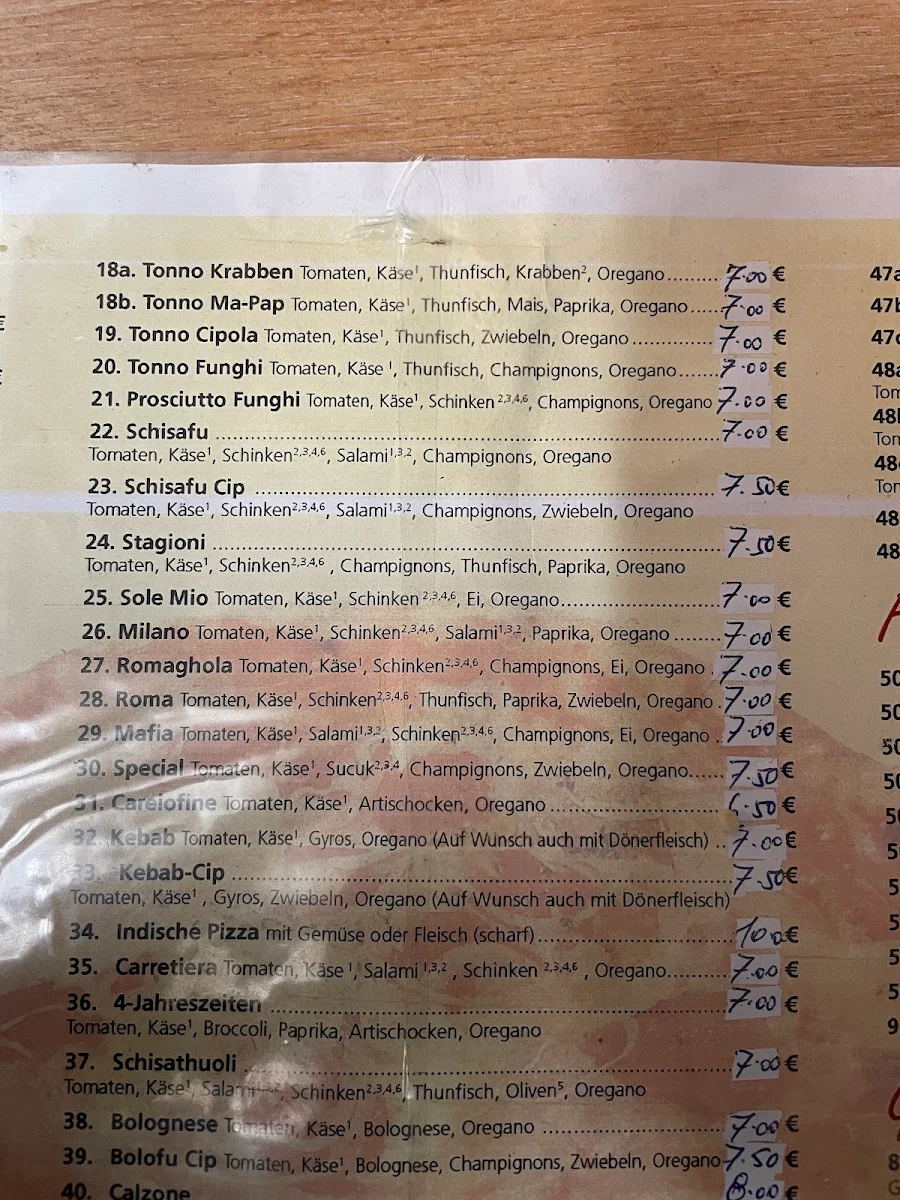 18a. Tonno Krabben Tomaten, Käse¹, Thunfisch, Krabben², Oregano........ 7.00 €
18b. Tonno Ma-Pap Tomaten, Käse¹, Thunfisch, Mais, Paprika, Oregano..... 7.00 €
19. Tonno Cipola Tomaten, Käse¹, Thunfisch, Zwiebeln, Oregano ................ 7.00 €
20. Tonno Funghi Tomaten, Käse ¹, Thunfisch, Champignons, Oregano....... 7.00 €
21. Prosciutto Funghi Tomaten, Käse¹, Schinken ²,³,⁴,⁶, Champignons, Oregano 7.00 €
22. Schisafu ........ 7.00 €
Tomaten, Käse¹, Schinken²,³,⁴,⁶, Salami¹,³,², Champignons, Oregano
23. Schisafu Cip ........ 7.50 €
Tomaten, Käse¹, Schinken²,³,⁴,⁶, Salami¹,³,², Champignons, Zwiebeln, Oregano
24. Stagioni ........ 7.50 €
Tomaten, Käse¹, Schinken²,³,⁴,⁶ , Champignons, Thunfisch, Paprika, Oregano
25. Sole Mio Tomaten, Käse¹, Schinken ²,³,⁴,⁶, Ei, Oregano........ 7.00 €
26. Milano Tomaten, Käse¹, Schinken²,³,⁴,⁶, Salami¹,³,², Paprika, Oregano ........ 7.00 €
27. Romaghola Tomaten, Käse¹, Schinken²,³,⁴,⁶, Champignons, Ei, Oregano . 7.00 €
28. Roma Tomaten, Käse¹, Schinken²,³,⁴,⁶, Thunfisch, Paprika, Zwiebeln, Oregano . 7.00 €
29. Mafia Tomaten, Käse¹, Salami¹,³,², Schinken²,³,⁴,⁶, Champignons, Ei, Oregano .. 7.00 €
30. Special Tomaten, Käse¹, Sucuk²,³,⁴, Champignons, Zwiebeln, Oregano...... 7.50 €
31. Careiofine Tomaten, Käse¹, Artischocken, Oregano ........ 6.50 €
32. Kebab Tomaten, Käse¹, Gyros, Oregano (Auf Wunsch auch mit Dönerfleisch) .. 7.00 €
33. Kebab-Cip ........ 7.50 €
Tomaten, Käse¹ , Gyros, Zwiebeln, Oregano (Auf Wunsch auch mit Dönerfleisch)
34. Indische Pizza mit Gemüse oder Fleisch (scharf)........ 10 0 €
35. Carretiera Tomaten, Käse ¹, Salami ¹,³,² , Schinken ²,³,⁴,⁶ , Oregano........ 7.00 €
36. 4-Jahreszeiten ........ 7.00 €
Tomaten, Käse¹, Broccoli, Paprika, Artischocken, Oregano
37. Schisathuoli ........ 7.00 €
Tomaten, Käse¹, Salami¹,³,², Schinken²,³,⁴,⁶, Thunfisch, Oliven⁵, Oregano
38. Bolognese Tomaten, Käse¹, Bolognese, Oregano ........ 7.00 €
39. Bolofu Cip Tomaten, Käse¹, Bolognese, Champignons, Zwiebeln, Oregano 7.50 €
40. Calzone 8.00 €
47a
47b
48a
48
48